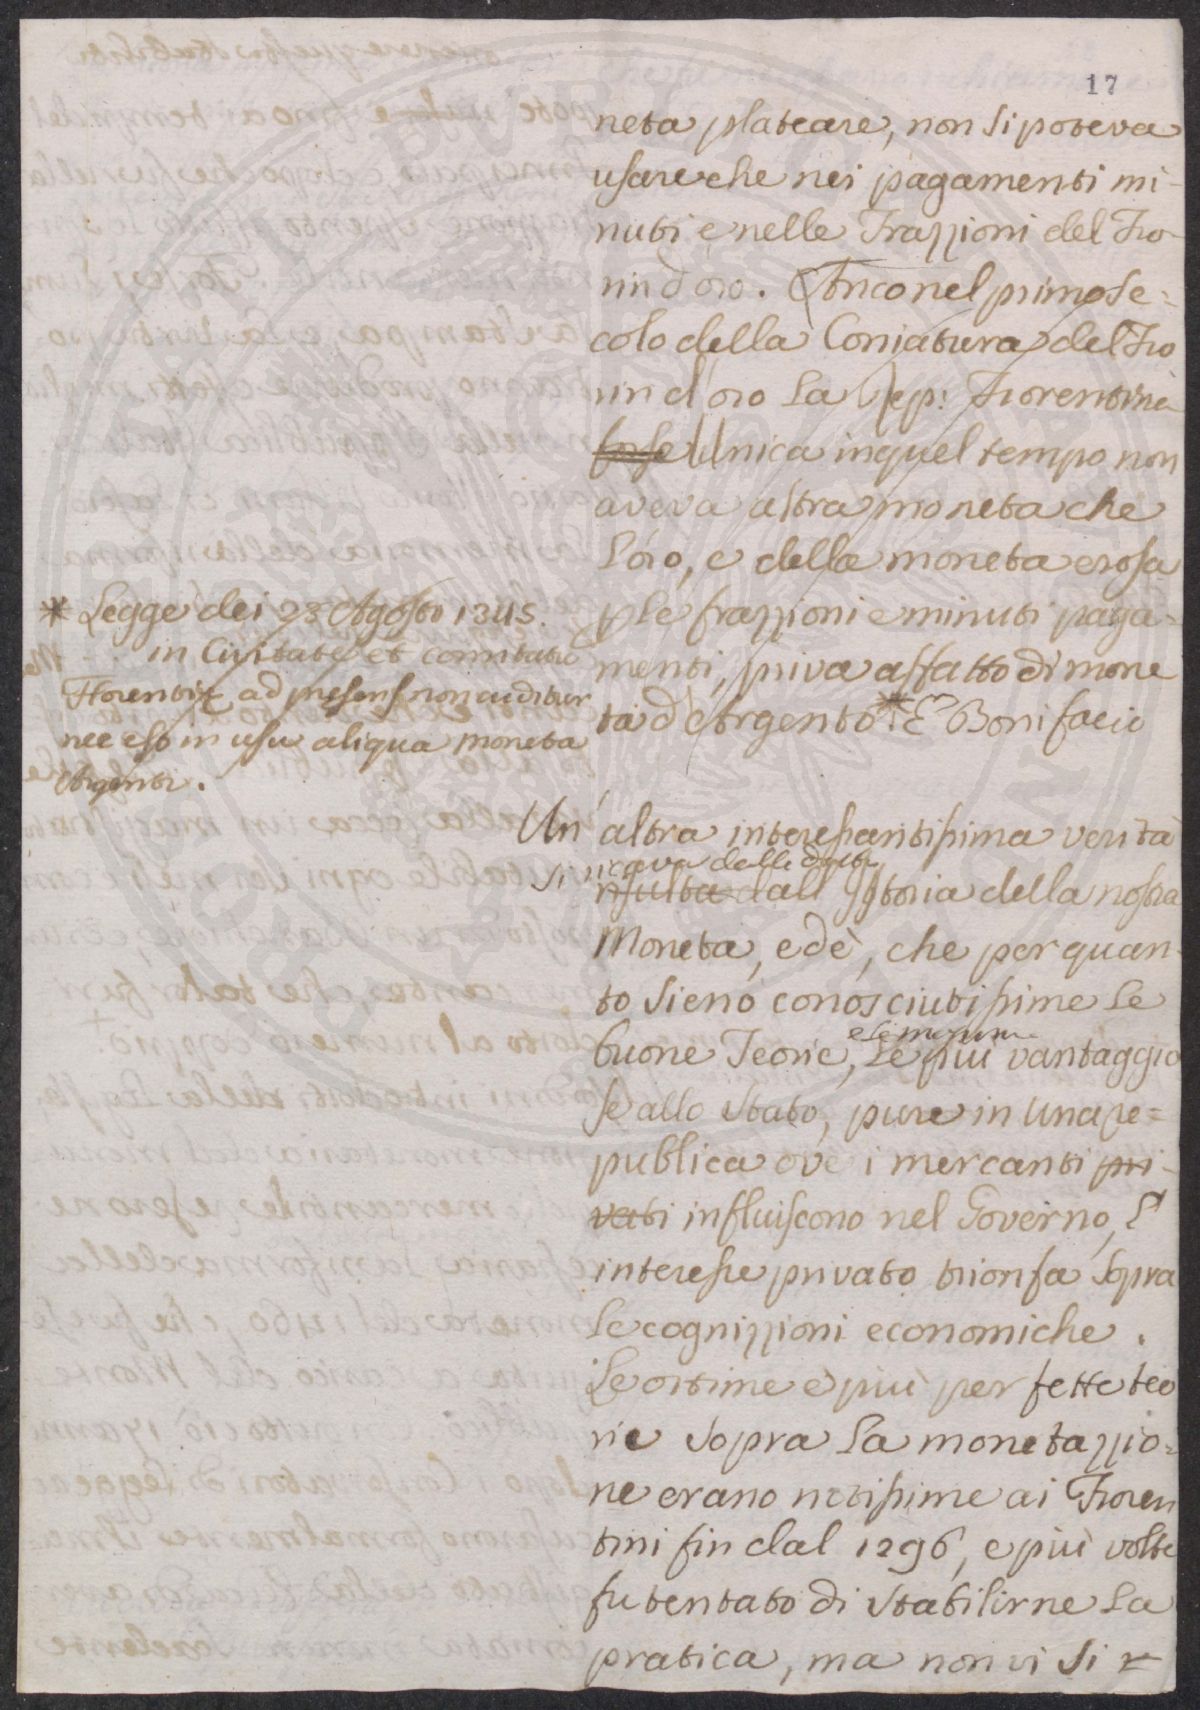 17
neta plateare, non si poteva
usare che nei pagamenti mi-
nuti e nelle Frazzioni del Fio-
rin d'oro. Anco nel primo se=
colo della Coniatura del Fio
rin d'oro la Rep: Fiorentina
forse Unica in quel tempo non
aveva altra moneta che
l'oro, e della moneta erosa
p le frazzioni e minuti paga-
menti, priva affatto di mone
ta d'Argento *. E Bonifacio
* Legge dei 23 Agosto 1345.
in Civitate et comitatu
Florentie ad presens non cuditur
nec est in usu aliqua moneta
Argenti.
Un'altra interessantissima verità
si ricava dalle dette
risulta dall' Istoria della nostra
Moneta, ed è, che per quan-
to sieno conosciutissime le
buone Teorie, le più vantaggio
e le massime
se allo stato, pure in una re=
publica ove i mercanti pri-
vati influiscono nel Governo, l'
interesse privato trionfa sopra
le cognizzioni economiche.
Le ottime e più perfette teo
rie sopra la monetazzio-
ne erano notissime ai Fioren
tini fin dal 1296, e più volte
fu tentato di stabilirne la
pratica, ma non vi si r